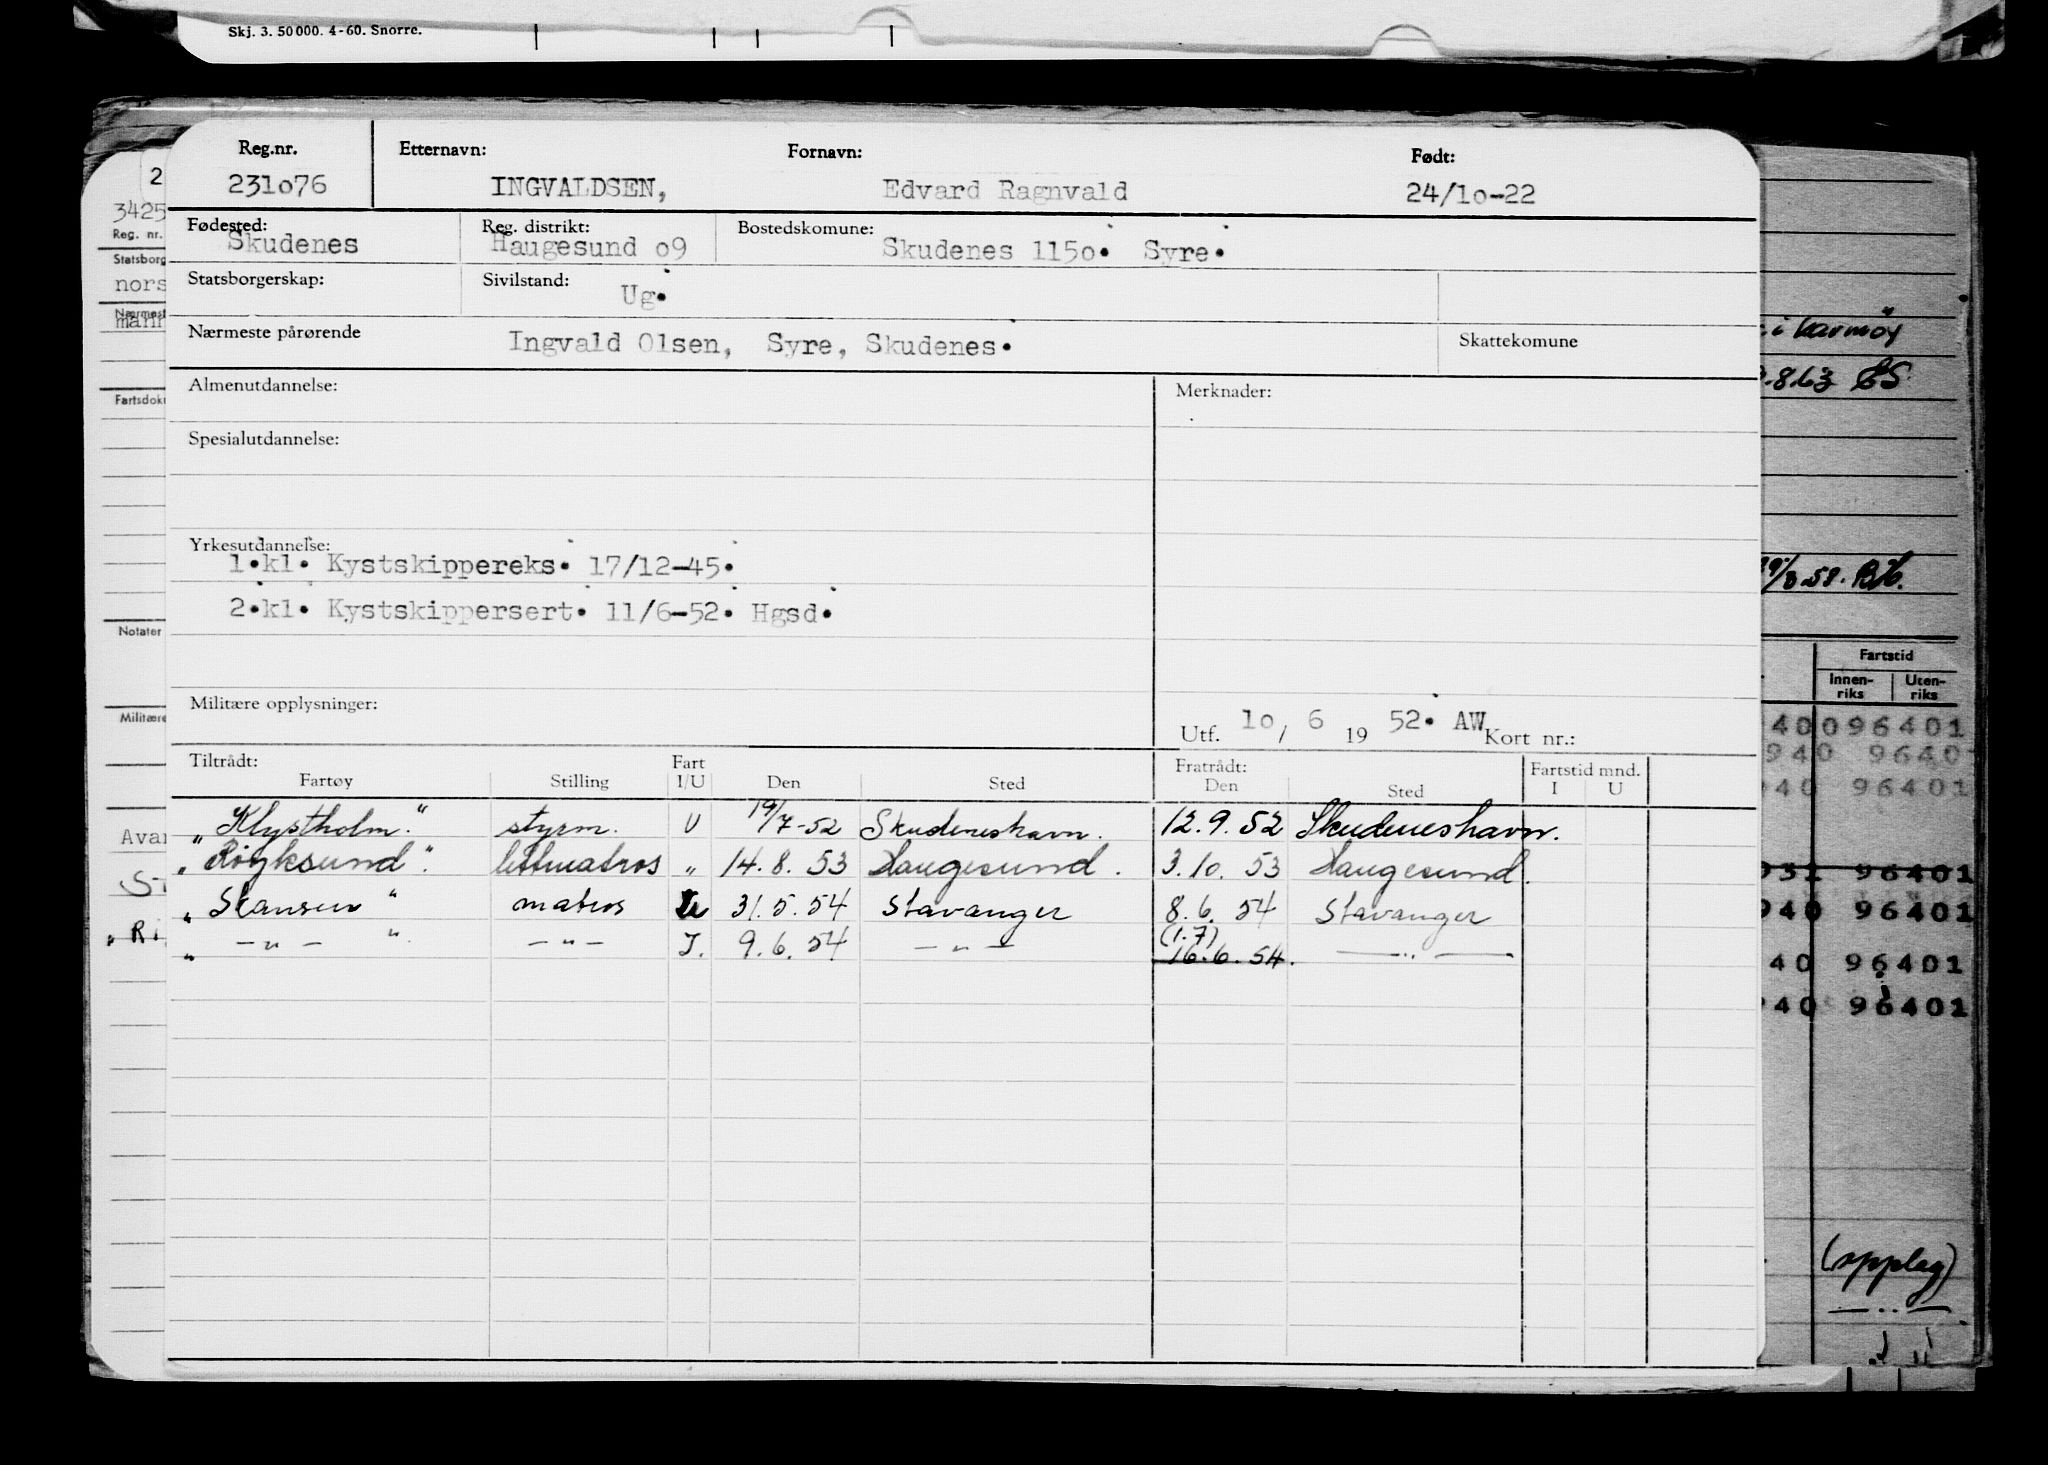 Skj. 3. 50000. 4-60. Snorre.
Reg.nr. Etternavn: Fornavn: Født:
231o76 INGVALDSEN, Edvard Ragnvald 24/1o-22
Fødested: Reg. distrikt: Bostedskomune:
Skudenes Haugesund o9 Skudenes 115o. Syre.
Statsborgerskap: Sivilstand: Ug.
Nærmeste pårørende Ingvald Olsen, Syre, Skudenes. Skattekomune
Almenutdannelse: Merknader:
Spesialutdannelse:
Yrkesutdannelse:
1.kl. Kystskippereks. 17/12-45.
2.kl. Kystskippersert. 11/6-52. Hgsd.
Militære opplysninger: Utf. 1o / 6 19 52. AW Kort nr.:
Tiltrådt: Fart Fratrådt: Fartstid mnd.
Fartøy Stilling I/U Den Sted Den Sted I U
"Klystholm." styrm. U 19/7-52 Skudeneshavn. 12.9.52 Skudeneshavn.
"Røyksund". lettmatros " 14.8.53 Haugesund. 3.10.53 Haugesund.
"Skansen" matros U 31.5.54 Stavanger 8.6.54 Stavanger
" -"- " -"- I. 9.6.54 -"- (1.7)
16.6.54. -"-
2
3425
Reg. nr.
Statsborg
nors
Nærmest
mann
Fartsdoku
Notater
Militære
Avan
St
" Ri
i Karmöy
.8.63 ES
9/8 58. RH.
Fartstid
Innen-riks Uten-riks
400 96401
940 9640
40 96401
931 96401
940 96401
40 96401
940 96401
(opplag)
-"-